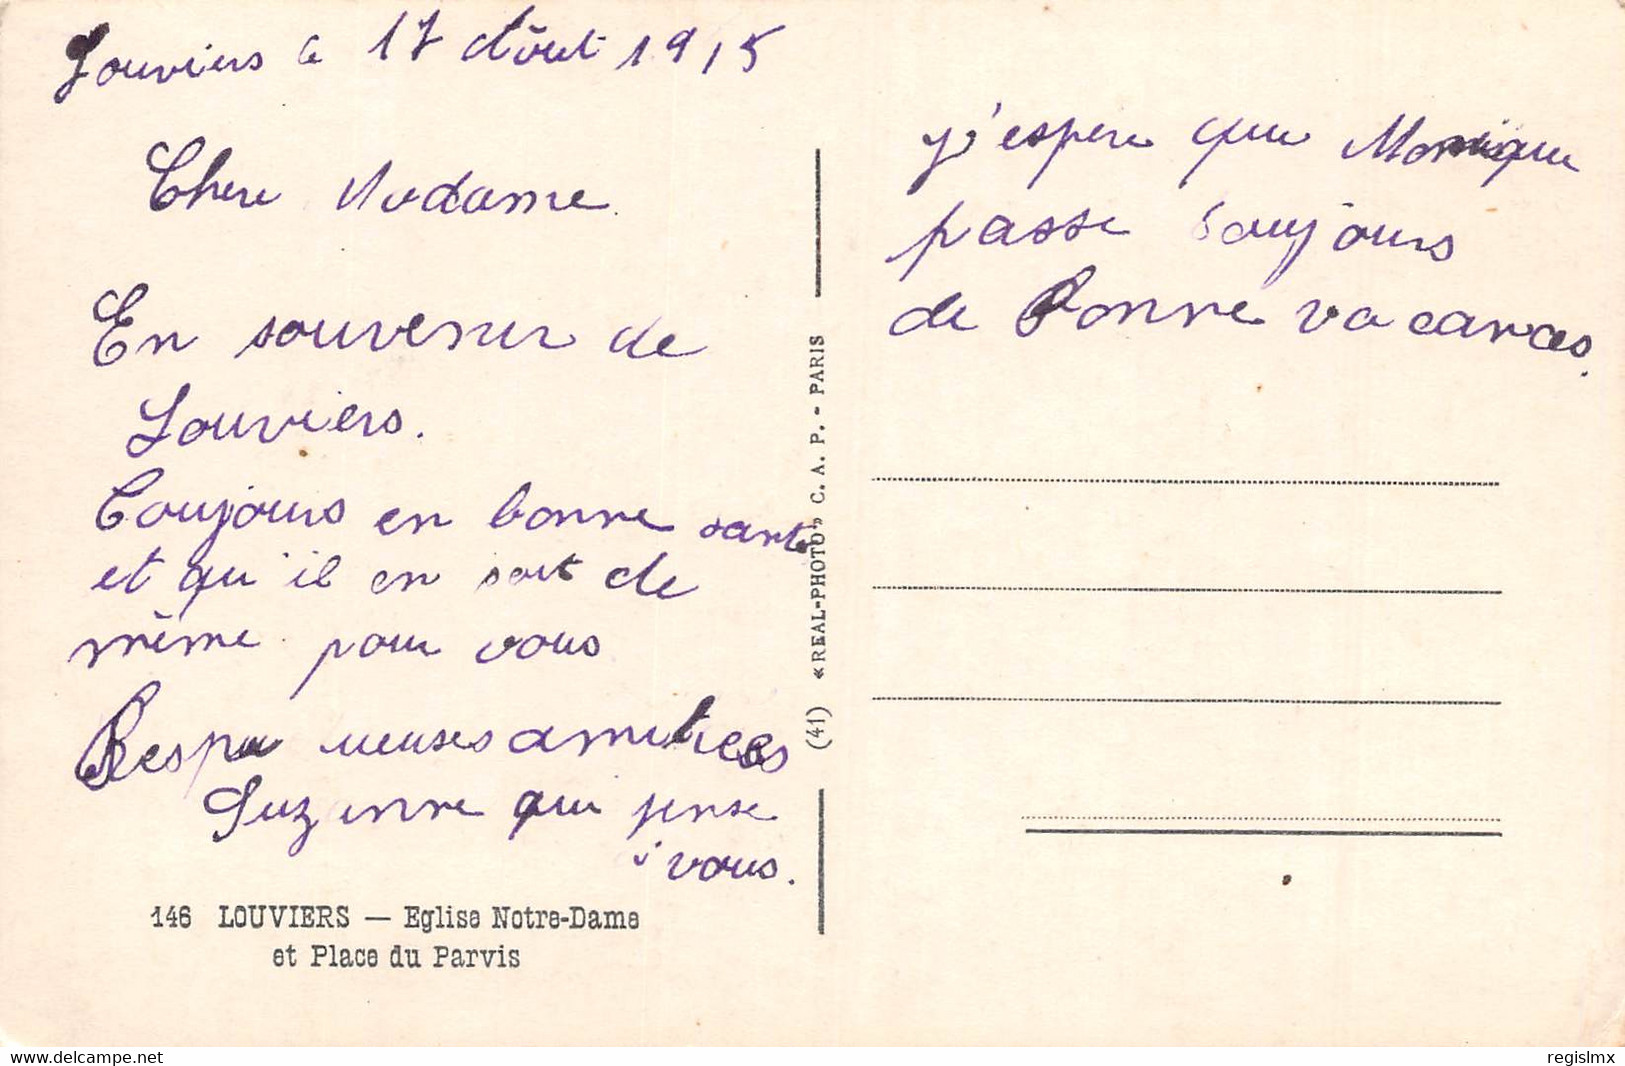 Louviers le 17 Août 1915
Chere Madame
En souvenir de
Louviers.
Toujours en bonne santé
et qu'il en soit de
même pour vous
Respectueuses amitiees
Suzanne qui pense
à vous.
146 LOUVIERS — Eglise Notre-Dame
et Place du Parvis
(41) «REAL-PHOTO» C. A. P. - PARIS
j'espere que Monique
passe toujours
de Bonne vacances.
www.delcampe.net
regislmx